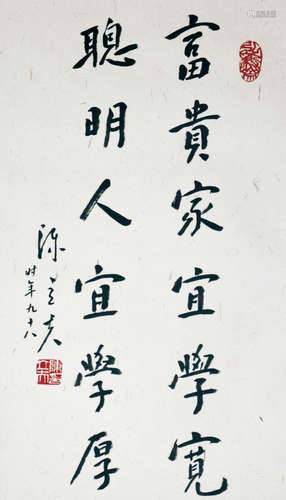 富貴家宜學寬
聰明人宜學厚
陳立夫
時年九十八